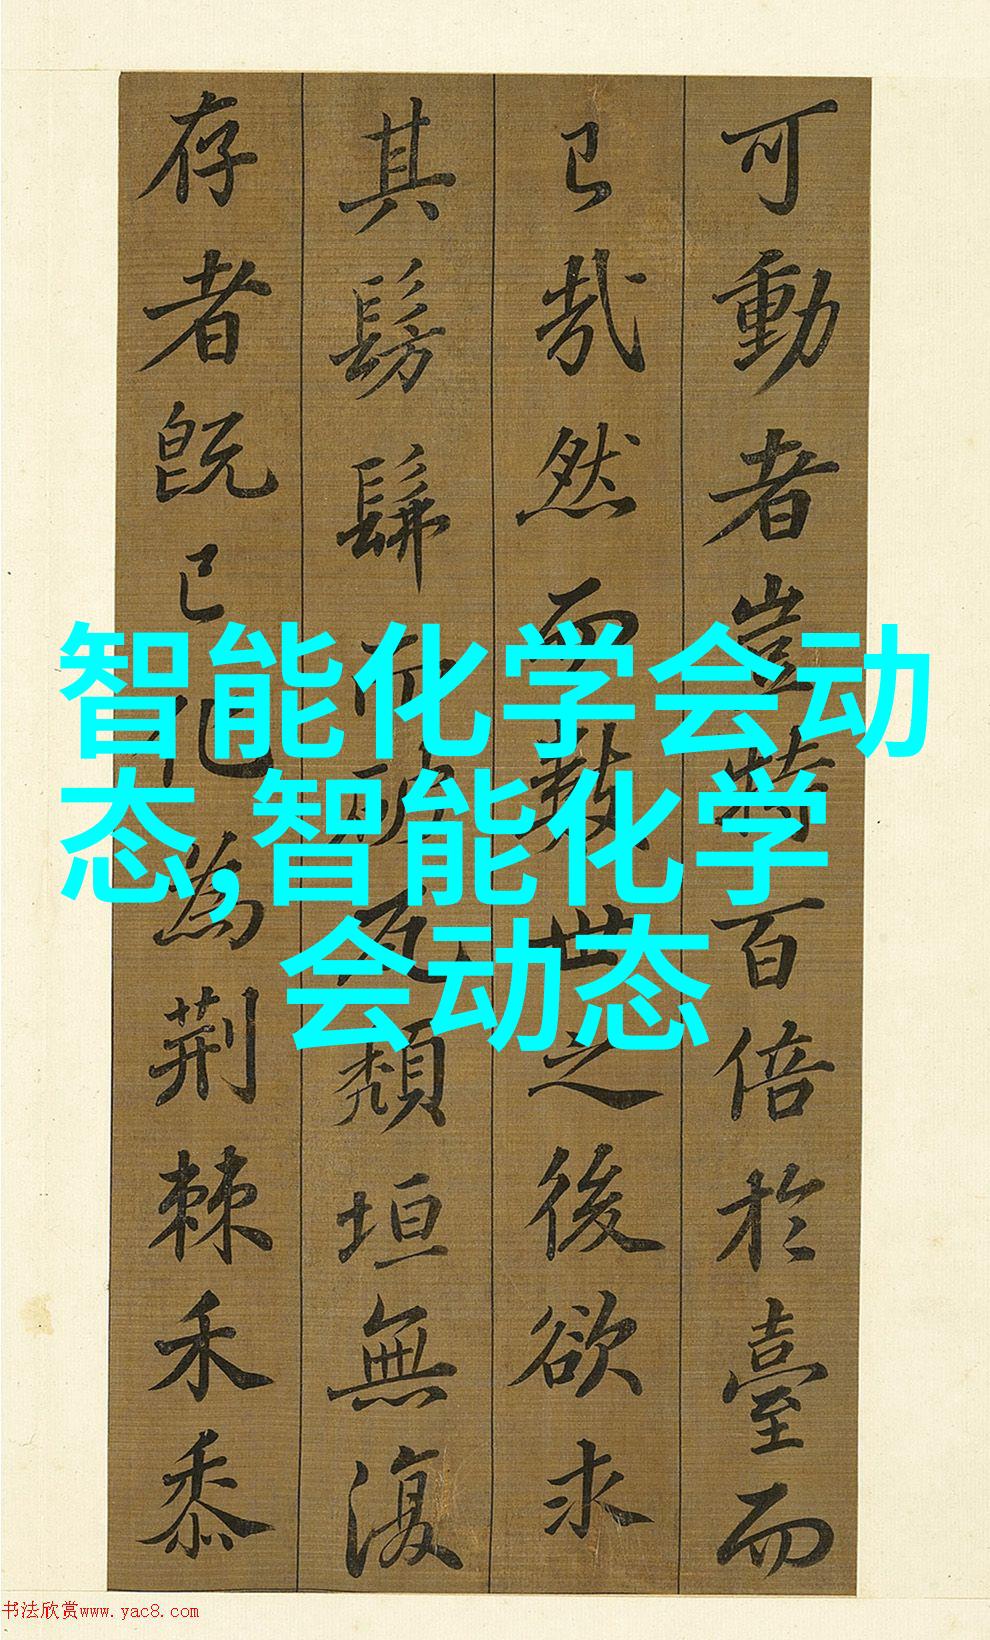 可動者豈特百倍於臺而
已哉然而數世之後欲求
其髣髴而破瓦頽垣無復
存者既已化為荊棘禾黍
智能化学会动
态,智能化学
会动态
书法欣赏www.yac8.com